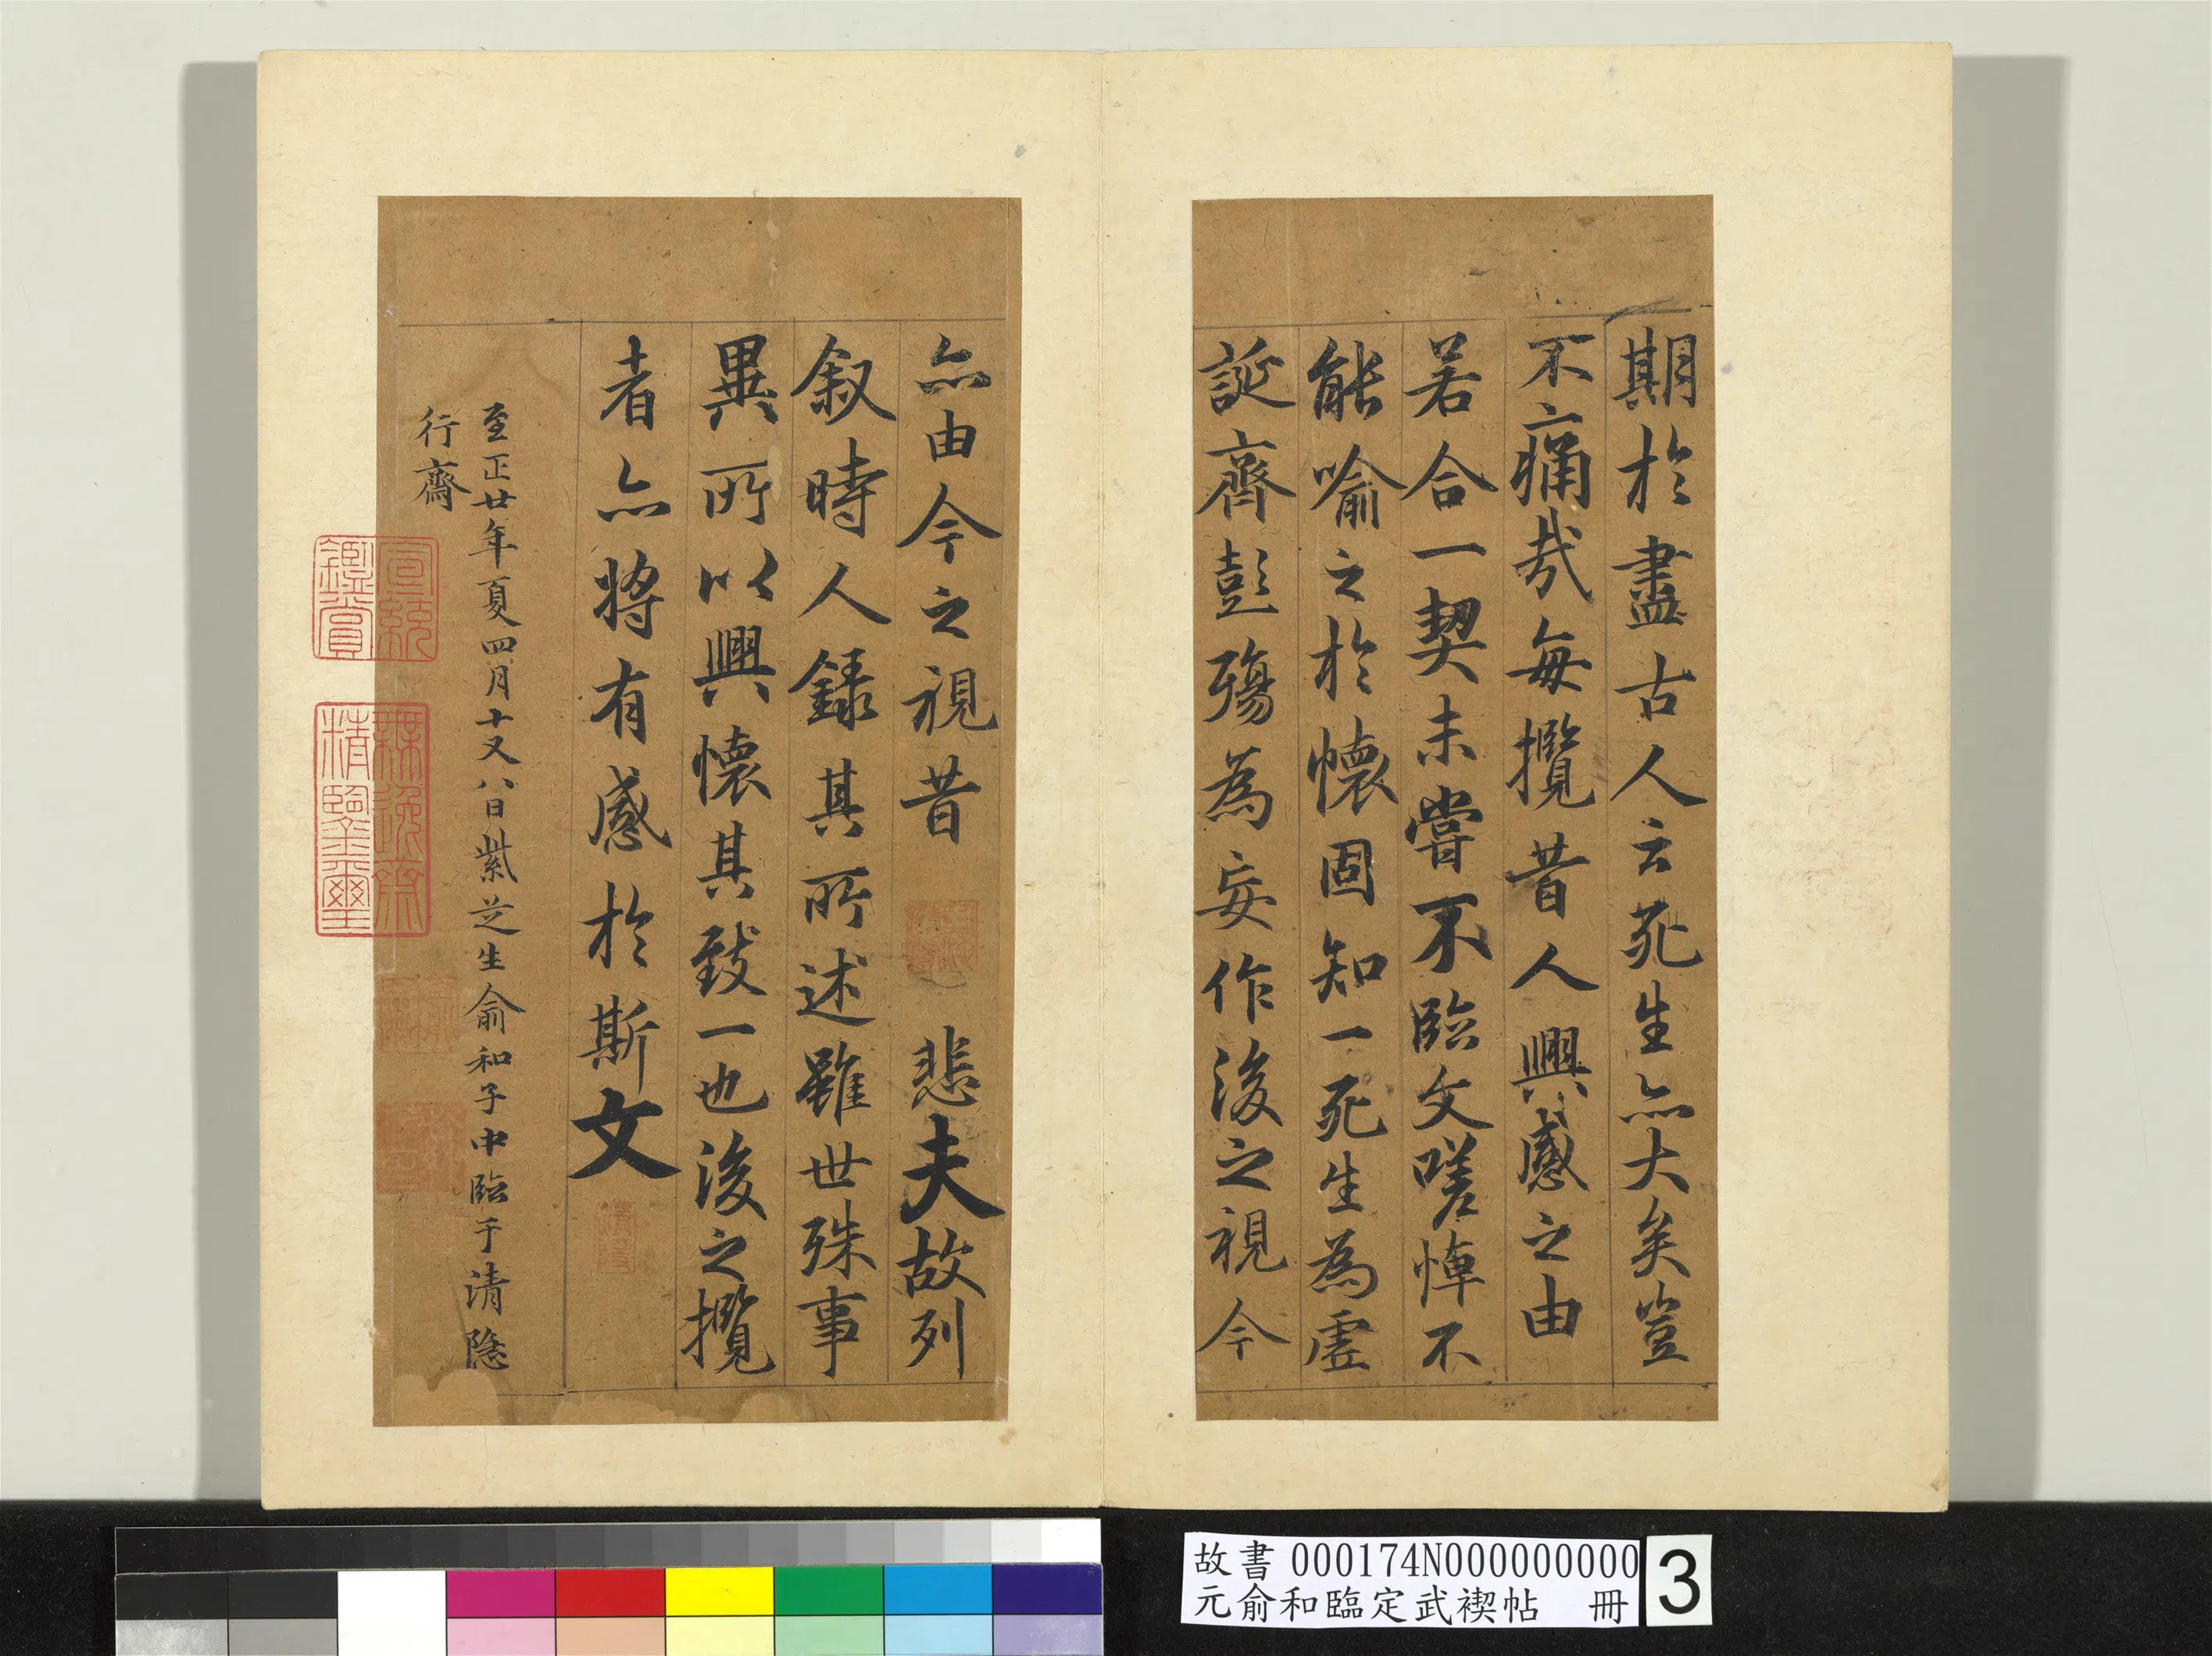 期於盡古人云死生亦大矣豈
不痛哉每攬昔人興感之由
若合一契未嘗不臨文嗟悼不
能喻之於懷固知一死生為虛
誕齊彭殤為妄作後之視今
亦由今之視昔 悲夫故列
叙時人錄其所述雖世殊事
異所以興懷其致一也後之攬
者亦將有感於斯文
至正廿年夏四月十又八日紫芝生俞和子中臨于清隱
行齋
宣統
鑑賞
無逸齋
精鑒璽
清隱
故書 000174N000000000
元俞和臨定武禊帖 冊
3